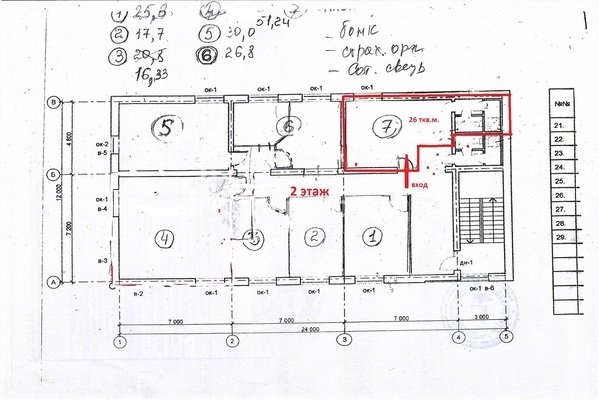 ① 25,3 ④ 7
51,24
② 17,7 ⑤ 30,0
③ 20,8 ⑥ 26,8
16,33
- банк
- страх. орг.
- Сот. связь
ок-1 ок-1 ок-1
В
5 6 7 26 ткв.м.
ок-2
в-5
4 800
Б
12 000
2 этаж вход
ок-1
в-4
7 200
4 3 2 1
в-3
дн-1
А
в-2 ок-1 ок-1 ок-1 ок-1 в-6
7 000 7 000 7 000 3 000
24 000
1 2 3 4 5
№№
21.
22.
23.
24.
25.
26.
27.
28.
29.